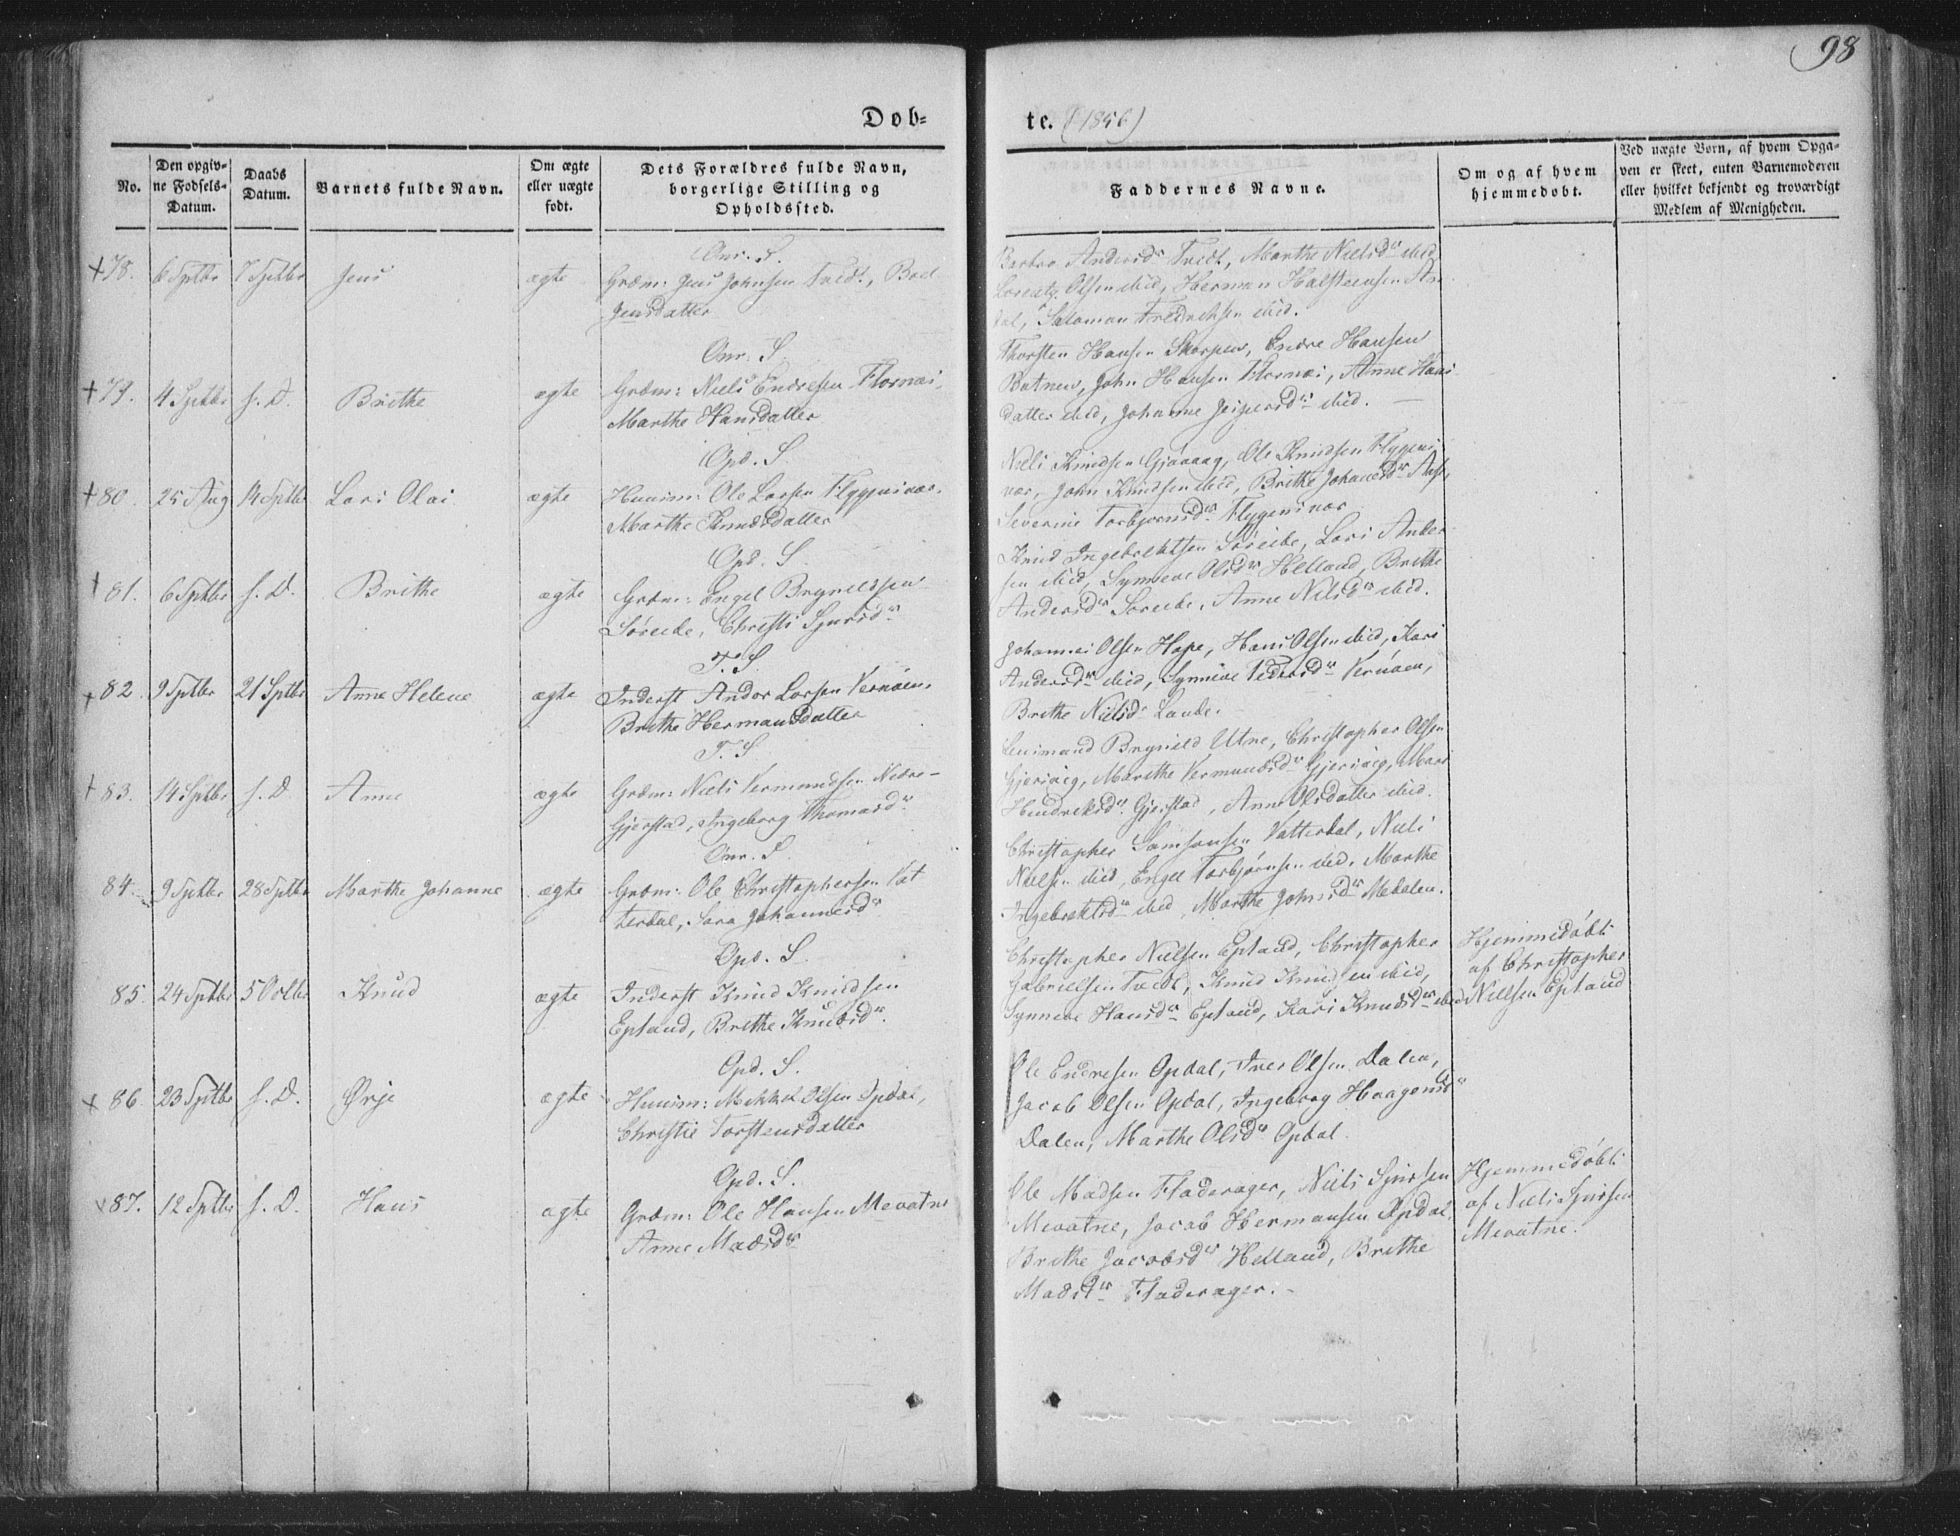 98
Døb-
te. (1856)
No.
Den opgiv-
ne Fødsels-
Datum.
Daabs
Datum.
Barnets fulde Navn.
Om ægte
eller uægte
født.
Dets Forældres fulde Navn,
borgerlige Stilling og
Opholdssted.
Faddernes Navne.
Om og af hvem
hjemmedøbt.
Ved uægte Børn, af hvem Opga-
ven er skeet, enten Barnemoderen
eller hvilket bekjendt og troværdigt
Medlem af Menigheden.
+78. 6 Sptbr 7 Sptbr Jens ægte
Øvr. S.
Grdm: Jens Johnsen Tvedt,
Jensdatter
Barbro Andersdr Tvedt, Marthe Nielsdr ibid
Olsen ibid, Herman Halsteensen An
dal, Salamon Fredriksen ibid.
+79. 4 Sptbr s. D. Brithe ægte
Øvr. S.
Grdm: Niels Endresen Flornæs,
Marthe Hansdatter
Thorsten Hansen Skorpen, Endre Hansen
Botnen, John Hansen Flornæs, Anne Hans
datter ibid, Johanne Jespersdr ibid.
+80. 25 Aug 14 Sptbr Lars Olai ægte
Opd. S.
Huusm: Ole Larsen Flygensvær,
Marthe Knudsdatter
Niels Knudsen Gjøvaag, Ole Knudsen Flygens
vær, John Knudsen ibid, Brithe Johansdr
Severine Torbjørnsdr Flygensvær
+81. 6 Sptbr s. D. Brithe ægte
Opd. S.
Grdm: Engel Brynildsen
Søreide, Christi Sjursdr
Knud Ingebrektsen Søreide, Lars Ander
sen ibid, Synneve Olsdr Helland, Brithe
Andersdr Søreide, Anne Nilsdr ibid.
+82. 9 Sptbr 21 Sptbr Anne Helene ægte
T. S.
Inderst Andor Larsen Vernøen,
Brithe Hermansdatter
Johannes Olsen Hope, Hans Olsen ibid, Kari
Andersdr ibid, Synneve Pedersdr Vernøen,
Brithe Nielsdr Lunde.
+83. 14 Sptbr s. D. Anne ægte
T. S.
Grdm: Niels Vermundsen Nedre-
Gjerstad, Ingeborg Thomasdr
Lensmand Brynild Utne, Christopher Olsen
Gjersvig, Marithe Vermundsdr Gjersvig, Mari
Hendriksdr Gjerstad, Anne Olsdatter ibid.
84. 9 Sptbr 28 Sptbr Marthe Johanne ægte
Øvr. S.
Grdm: Ole Christophersen Vat
terdal, Sara Johannesdr
Christopher Samsonsen Vatterdal, Niels
Nielsen ibid, Engel Torbjørnsen ibid, Marthe
Ingebrektsdr ibid, Marthe Johnsdr Mehalen.
85. 24 Sptbr 5 Octbr Knud ægte
Opd. S.
Inderst Knud Knudsen
Eptand, Brithe Knudsdr.
Christopher Nielsen Eptand, Christopher
Gabrielsen Tvedt, Knud Knudsen ibid,
Synneve Hansdr Eptand, Kari Knudsdr ibid
Hjemmedøbt
af Christopher
Nielsen Eptand
+86. 23 Sptbr s. D. Ørje ægte
Opd. S.
Huusm: Mikkel Olsen Opdal,
Christie Torstensdatter
Ole Endresen Opdal, Iver Olsen Dalen,
Jacob Olsen Opdal, Ingeborg Haagensdr
Dalen, Marthe Olsdr Opdal.
+87. 12 Sptbr s. D. Hans ægte
Opd. S.
Grdm: Ole Hansen Mevatne
Anne Madsdr
Ole Madsen Fladerager, Niels Sjursen
Mevatne, Jacob Hermansen Opdal,
Brithe Jacobsdr Helland, Brithe
Madsdr Fladerager.
Hjemmedøbt
af Niels Sjursen
Mevatne.